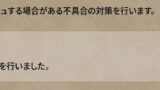 ュする場合がある不具合の対策を行います。
を行いました。